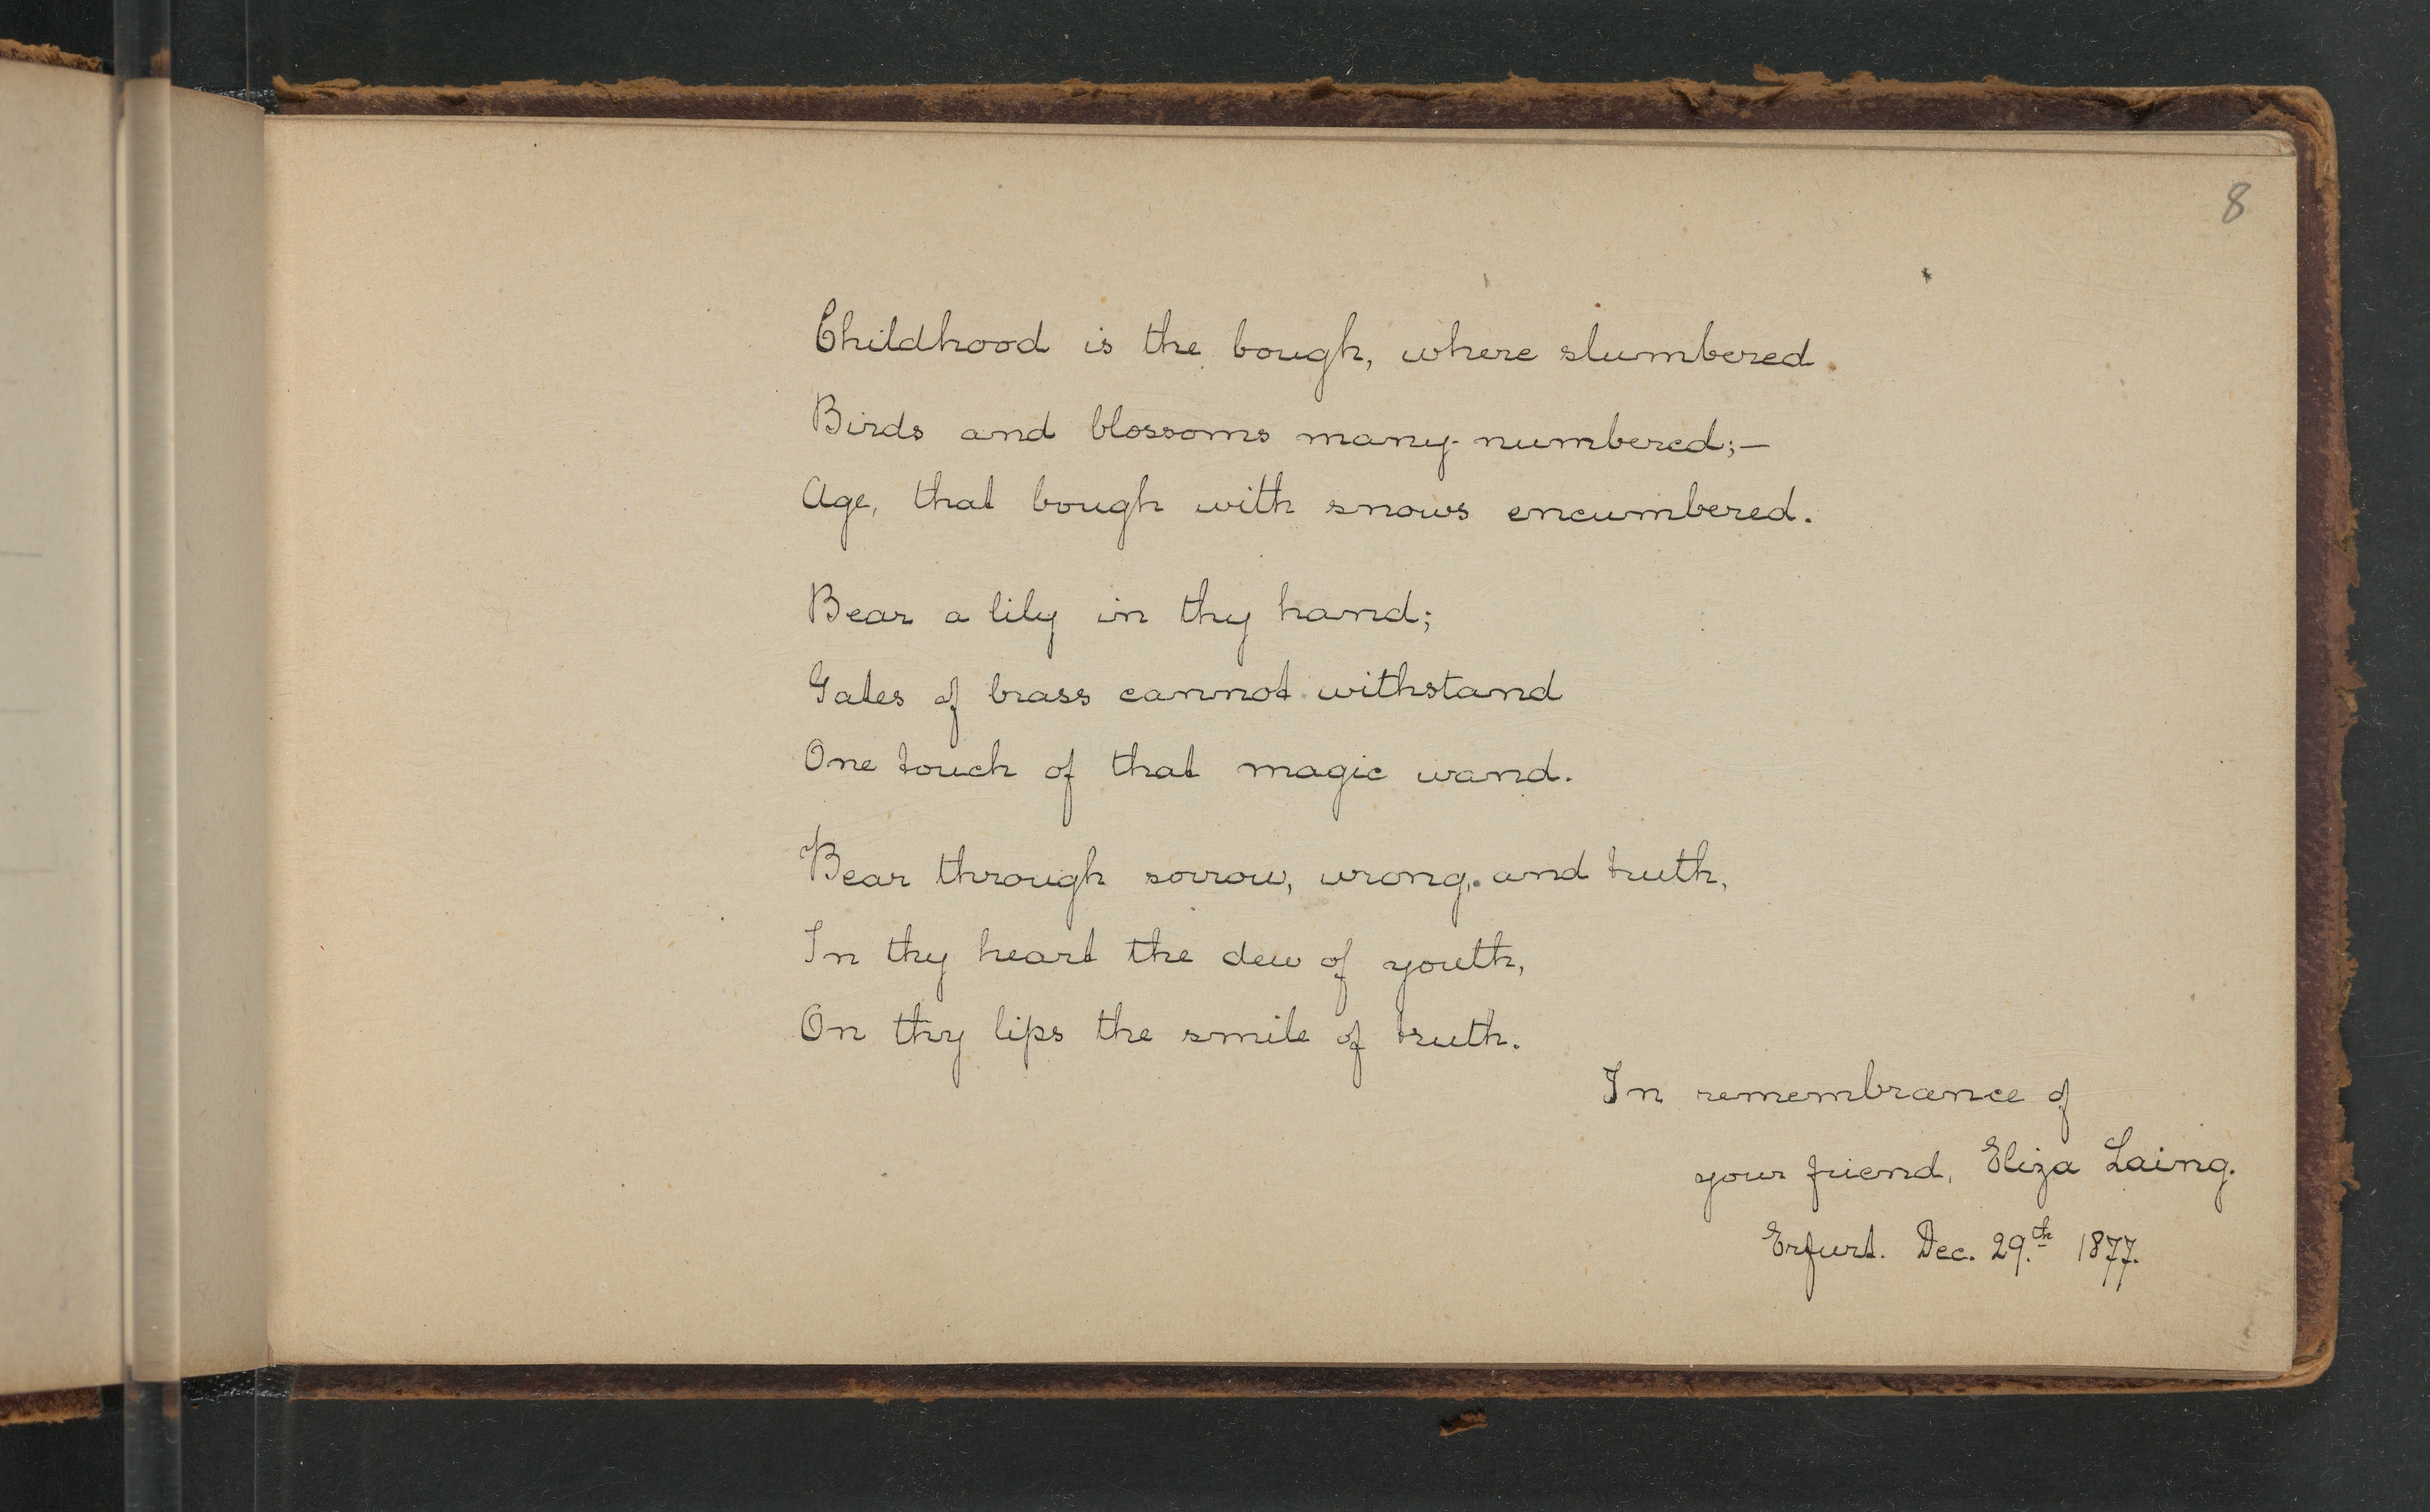 8
Childhood is the bough, where slumbered
Birds and blossoms many-numbered;—
Age, that bough with snows encumbered.
Bear a lily in thy hand;
Gates of brass cannot withstand
One touch of that magic wand.
Bear through sorrow, wrong, and truth,
In thy heart the dew of youth,
On thy lips the smile of truth.
In remembrance of
your friend, Eliza Laing.
Erfurt. Dec. 29.th 1877.